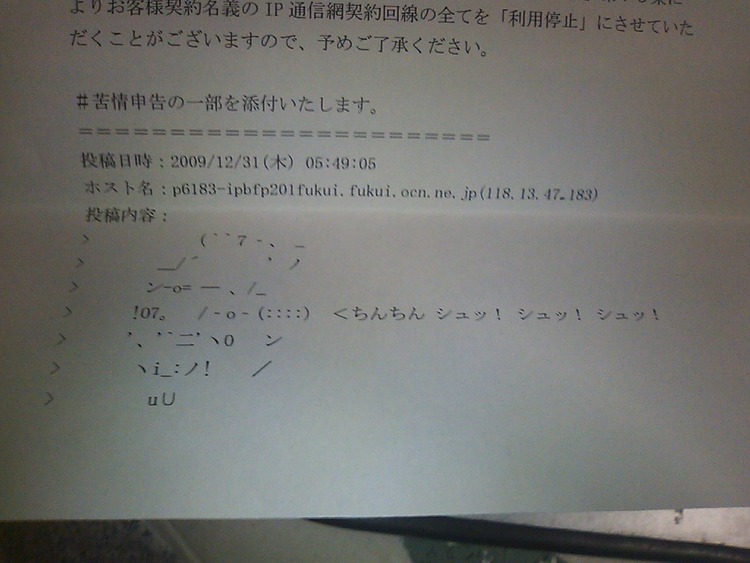 よりお客様契約名義の IP 通信網契約回線の全てを「利用停止」にさせていた
だくことがございますので、予めご了承ください。
＃苦情申告の一部を添付いたします。
===========================
投稿日時：2009/12/31(木) 05:49:05
ホスト名：p6183-ipbfp201fukui.fukui.ocn.ne.jp(118.13.47.183)
投稿内容：
> (｀｀7 -、 _
> __/´ ｀ ノ
> ン-o= ― 、/_
> !07。 /-o-(::::) ＜ちんちん シュッ! シュッ! シュッ!
> '、'｀二'ヽO ン
> ヽi_:ノ! ／
> u∪